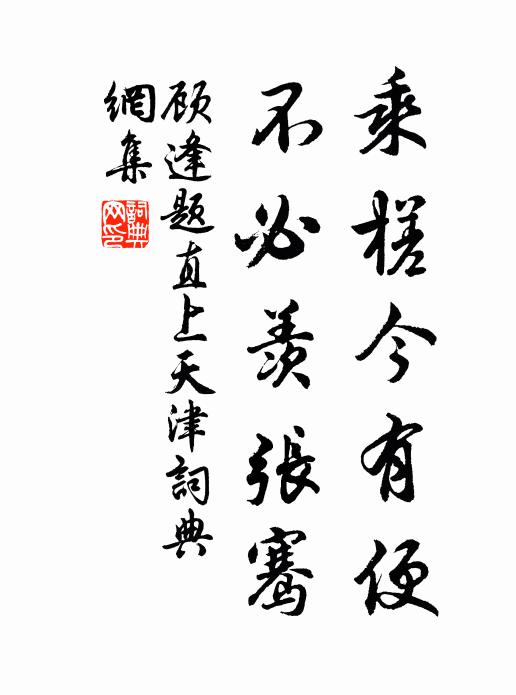 乘槎今有便
不必羨張騫
顾逢题直上天津詞典
網集
詞典網印